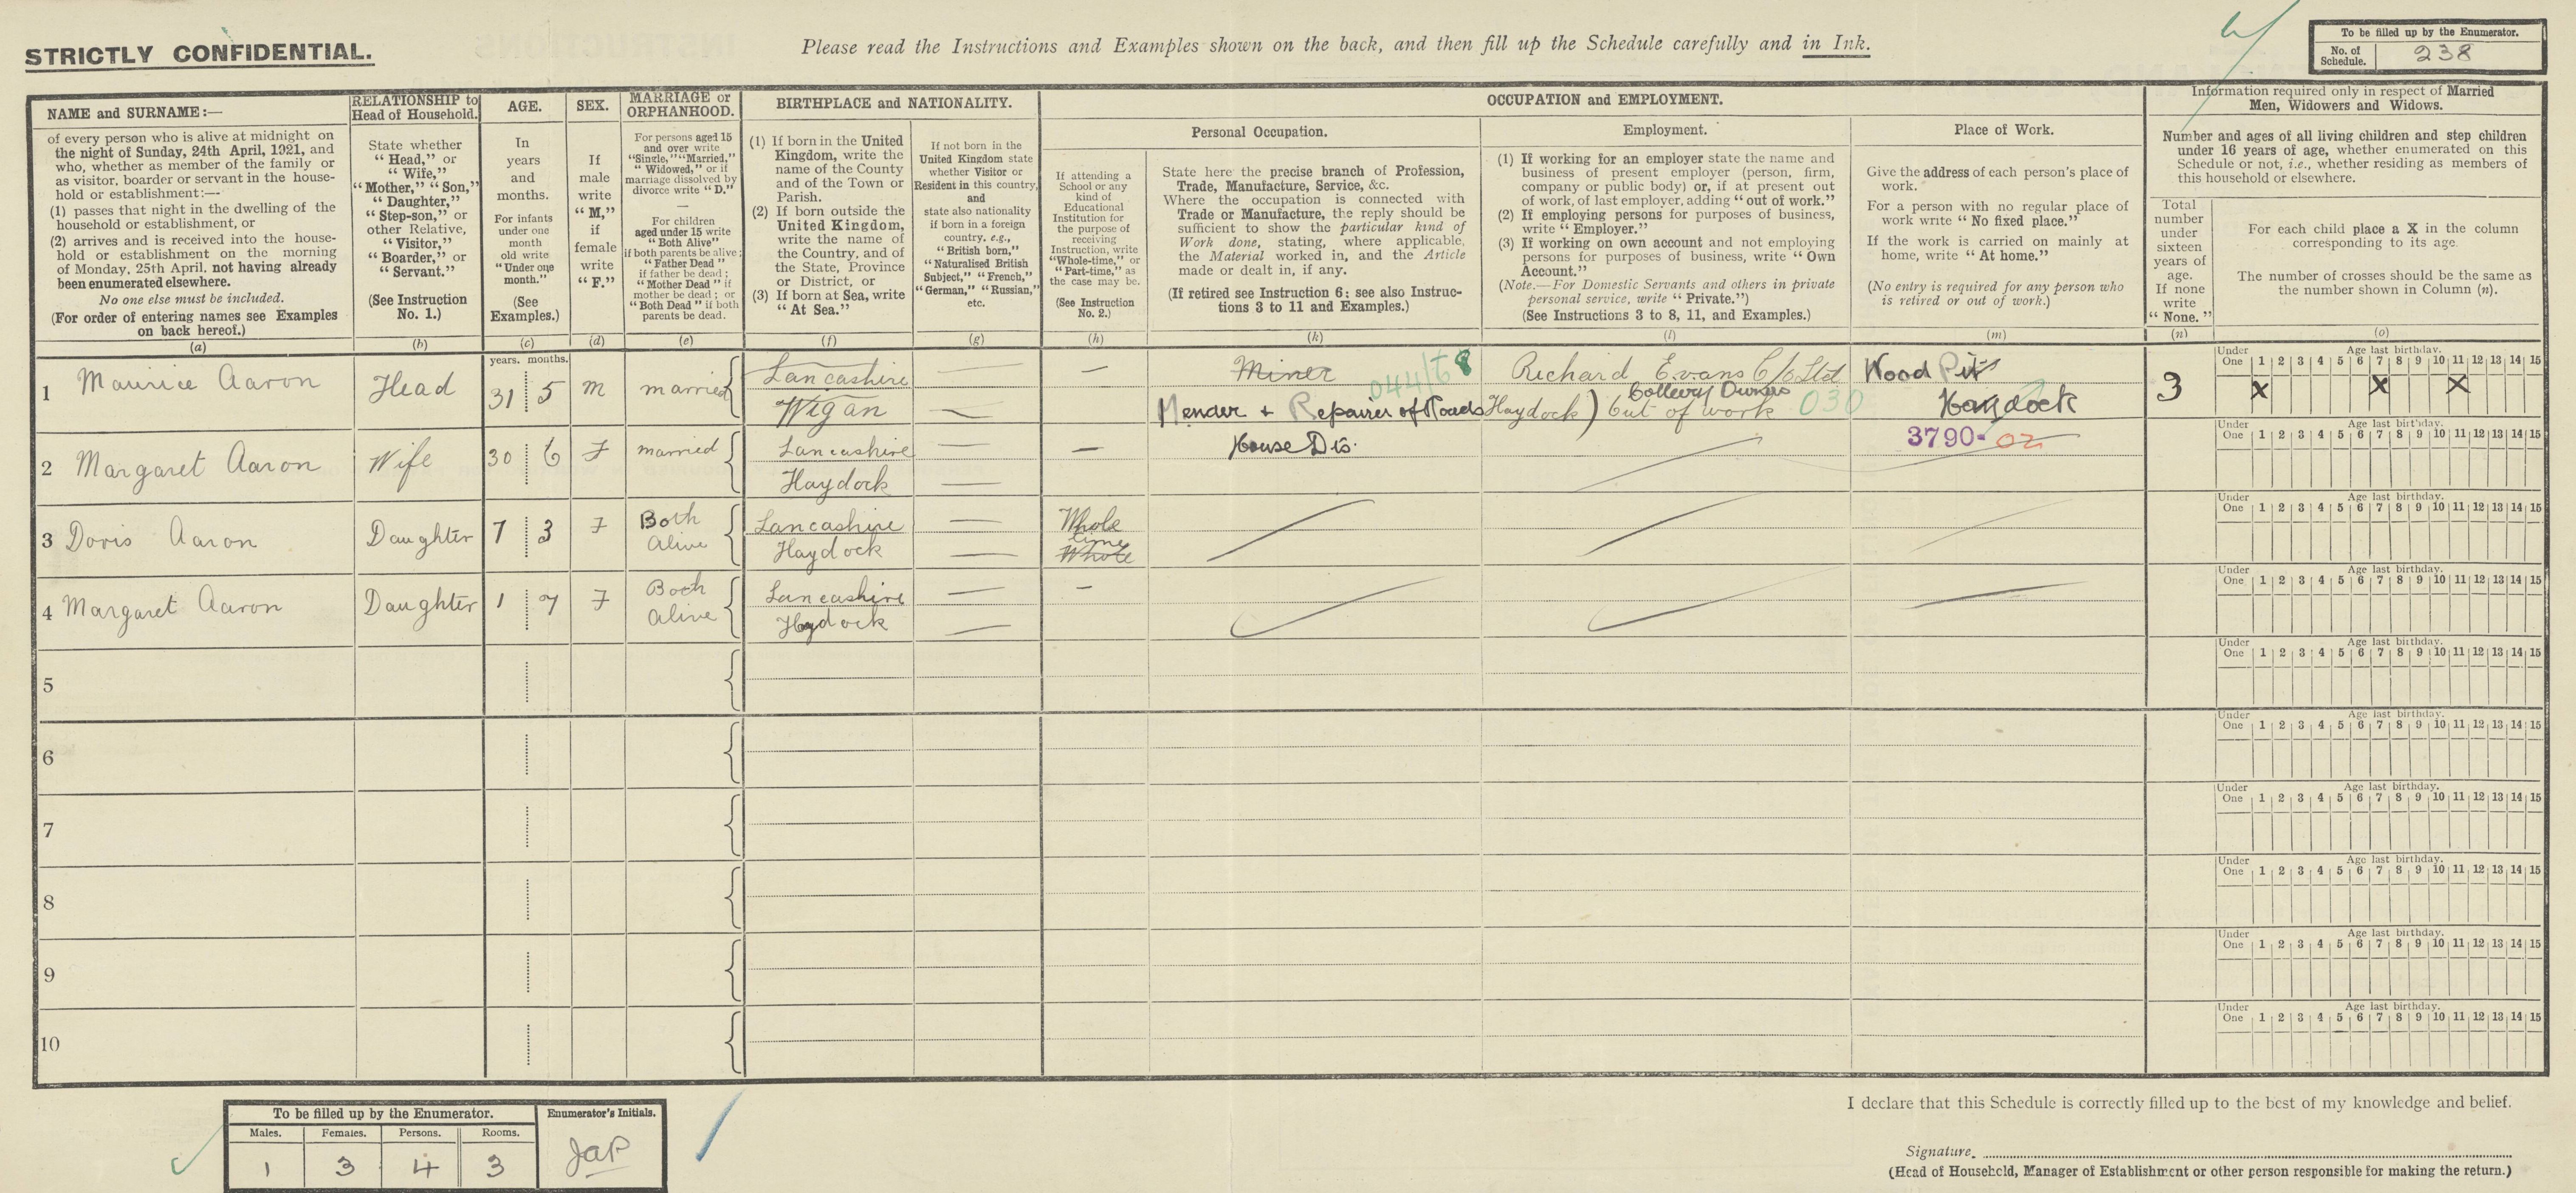 STRICTLY CONFIDENTIAL.
Please read the Instructions and Examples shown on the back, and then fill up the Schedule carefully and in Ink.
To be filled up by the Enumerator.
No. of Schedule. 238
NAME and SURNAME:—
of every person who is alive at midnight on
the night of Sunday, 24th April, 1921, and
who, whether as member of the family or
as visitor, boarder or servant in the house-
hold or establishment:—
(1) passes that night in the dwelling of the
household or establishment, or
(2) arrives and is received into the house-
hold or establishment on the morning
of Monday, 25th April, not having already
been enumerated elsewhere.
No one else must be included.
(For order of entering names see Examples
on back hereof.)
(a)
RELATIONSHIP to
Head of Household.
State whether
"Head," or
"Wife,"
"Mother," "Son,"
"Daughter,"
"Step-son," or
other Relative,
"Visitor,"
"Boarder," or
"Servant."
(See Instruction
No. 1.)
(b)
AGE.
In
years
and
months.
For infants
under one
month
old write
"Under one
month."
(See
Examples.)
(c)
SEX.
If
male
write
"M,"
if
female
write
"F."
(d)
MARRIAGE or
ORPHANHOOD.
For persons aged 15
and over write
"Single," "Married,"
"Widowed," or if
marriage dissolved by
divorce write "D."
—
For children
aged under 15 write
"Both Alive"
if both parents be alive;
"Father Dead"
if father be dead;
"Mother Dead" if
mother be dead; or
"Both Dead" if both
parents be dead.
(e)
BIRTHPLACE and NATIONALITY.
(1) If born in the United
Kingdom, write the
name of the County
and of the Town or
Parish.
(2) If born outside the
United Kingdom,
write the name of
the Country, and of
the State, Province
or District, or
(3) If born at Sea, write
"At Sea."
(f)
If not born in the
United Kingdom state
whether Visitor or
Resident in this country,
and
state also nationality
if born in a foreign
country. e.g.,
"British born,"
"Naturalised British
Subject," "French,"
"German," "Russian,"
etc.
(g)
OCCUPATION and EMPLOYMENT.
If attending a
School or any
kind of
Educational
Institution for
the purpose of
receiving
Instruction, write
"Whole-time," or
"Part-time," as
the case may be.
(See Instruction
No. 2.)
(h)
Personal Occupation.
State here the precise branch of Profession,
Trade, Manufacture, Service, &c.
Where the occupation is connected with
Trade or Manufacture, the reply should be
sufficient to show the particular kind of
Work done, stating, where applicable,
the Material worked in, and the Article
made or dealt in, if any.
(If retired see Instruction 6; see also Instruc-
tions 3 to 11 and Examples.)
(k)
Employment.
(1) If working for an employer state the name and
business of present employer (person, firm,
company or public body) or, if at present out
of work, of last employer, adding "out of work."
(2) If employing persons for purposes of business,
write "Employer."
(3) If working on own account and not employing
persons for purposes of business, write "Own
Account."
(Note.—For Domestic Servants and others in private
personal service, write "Private.")
(See Instructions 3 to 8, 11, and Examples.)
(l)
Place of Work.
Give the address of each person's place of
work.
For a person with no regular place of
work write "No fixed place."
If the work is carried on mainly at
home, write "At home."
(No entry is required for any person who
is retired or out of work.)
(m)
Information required only in respect of Married
Men, Widowers and Widows.
Number and ages of all living children and step children
under 16 years of age, whether enumerated on this
Schedule or not, i.e., whether residing as members of
this household or elsewhere.
Total
number
under
sixteen
years of
age.
If none
write
"None."
(n)
For each child place a X in the column
corresponding to its age.
The number of crosses should be the same as
the number shown in Column (n).
(o)
years. months.
1 Maurice Aaron Head 31 5 M married Lancashire — — Miner 044/6 8 Richard Evans C/o Ltd Wood Pit 3
Wigan — Mender + Repairer of Roads Haydock) Colliery Owners out of work 030 Haydock
Under One Age last birthday. 1 2 3 4 5 6 7 8 9 10 11 12 13 14 15
X X X
2 Margaret Aaron Wife 30 6 F married Lancashire — — House Dis. 3790-02
Haydock —
Under One Age last birthday. 1 2 3 4 5 6 7 8 9 10 11 12 13 14 15
3 Doris Aaron Daughter 7 3 F Both Alive Lancashire — Whole time Whole
Haydock —
Under One Age last birthday. 1 2 3 4 5 6 7 8 9 10 11 12 13 14 15
4 Margaret Aaron Daughter 1 7 F Both Alive Lancashire — —
Haydock —
Under One Age last birthday. 1 2 3 4 5 6 7 8 9 10 11 12 13 14 15
5
Under One Age last birthday. 1 2 3 4 5 6 7 8 9 10 11 12 13 14 15
6
Under One Age last birthday. 1 2 3 4 5 6 7 8 9 10 11 12 13 14 15
7
Under One Age last birthday. 1 2 3 4 5 6 7 8 9 10 11 12 13 14 15
8
Under One Age last birthday. 1 2 3 4 5 6 7 8 9 10 11 12 13 14 15
9
Under One Age last birthday. 1 2 3 4 5 6 7 8 9 10 11 12 13 14 15
10
Under One Age last birthday. 1 2 3 4 5 6 7 8 9 10 11 12 13 14 15
To be filled up by the Enumerator.
Males. Females. Persons. Rooms.
1 3 4 3
Enumerator's Initials.
JAP
I declare that this Schedule is correctly filled up to the best of my knowledge and belief.
Signature
(Head of Household, Manager of Establishment or other person responsible for making the return.)